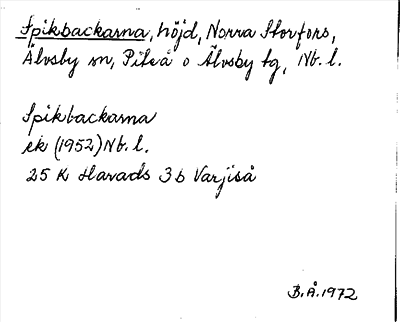 Spikbackarna, höjd, Norra Storfors,
Älvsby sn, Piteå o Älvsby tg, Nb. l.
Spikbackarna
ek (1952) Nb. l.
25 K Harads 3 b Varjiså
B.Å. 1972